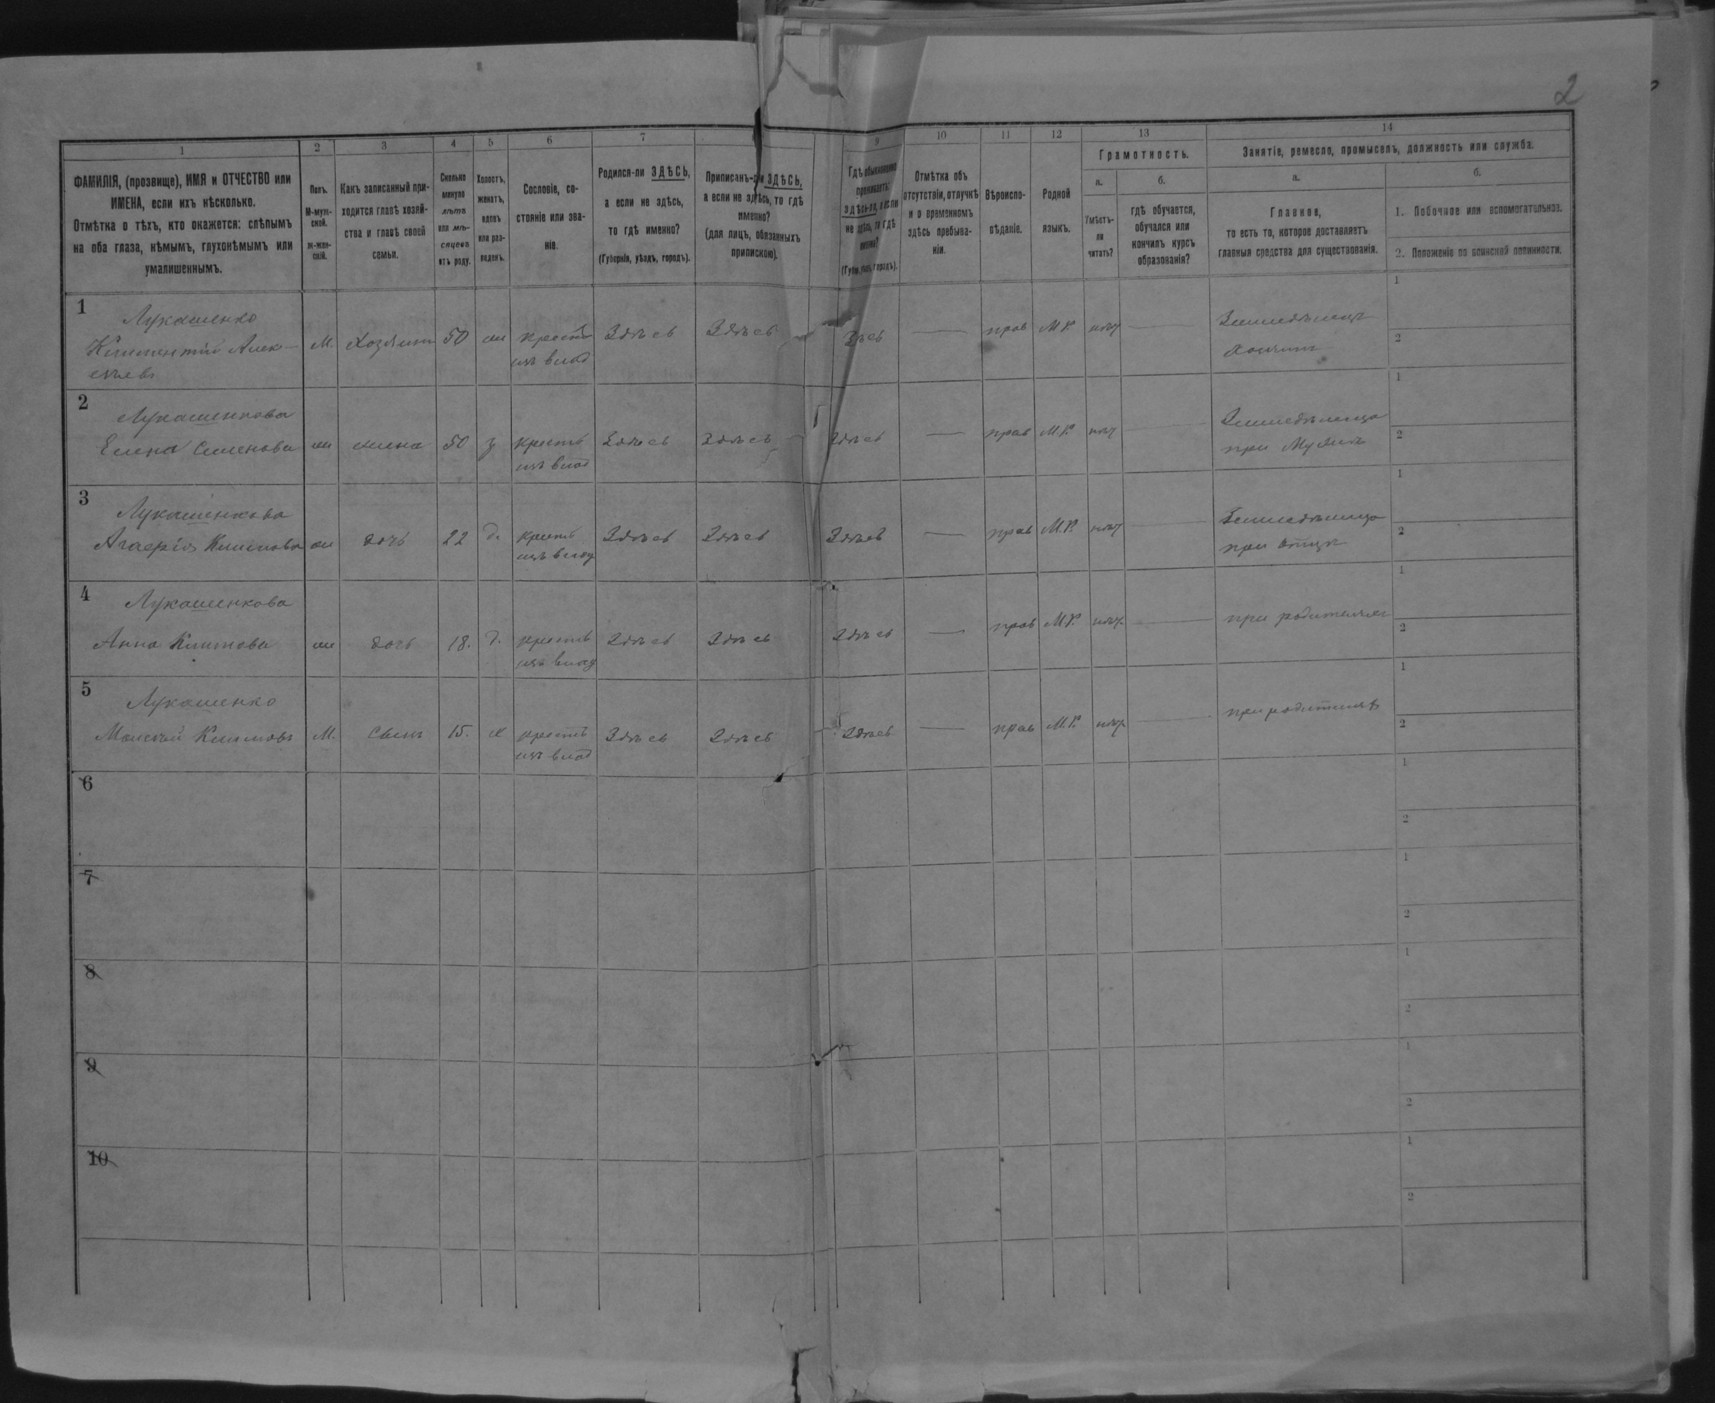 2
1
2
3
4
5
6
7
9
10
11
12
13
14
ФАМИЛІЯ, (прозвище), ИМЯ и ОТЧЕСТВО или
ИМЕНА, если ихъ нѣсколько.
Отмѣтка о тѣхъ, кто окажется: слѣпымъ
на оба глаза, нѣмымъ, глухонѣмымъ или
умалишеннымъ.
Полъ.
М-муж-
ской.
ж-жен-
скій.
Какъ записанный при-
ходится главѣ хозяй-
ства и главѣ своей
семьи.
Сколько
минуло
лѣтъ
или мѣ-
сяцевъ
отъ роду.
Холостъ,
женатъ,
вдовъ
или раз-
веденъ.
Сословіе, со-
стояніе или зва-
ніе.
Родился-ли ЗДѢСЬ,
а если не здѣсь,
то гдѣ именно?
(Губернія, уѣздъ, городъ).
Приписанъ-ли ЗДѢСЬ,
а если не здѣсь, то гдѣ
именно?
(для лицъ, обязанныхъ
припискою).
Гдѣ обыкновенно
проживаетъ:
ЗДѢСЬ-ли, а если
не здѣсь, то гдѣ
именно?
Отмѣтка объ
отсутствіи, отлучкѣ
и о временномъ
здѣсь пребыва-
ніи.
Вѣроиспо-
вѣданіе.
Родной
языкъ.
Грамотность.
а.
Умѣетъ-
ли
читать?
б.
гдѣ обучается,
обучался или
кончилъ курсъ
образованія?
Занятіе, ремесло, промыселъ, должность или служба.
а.
Главное,
то есть то, которое доставляетъ
главныя средства для существованія.
б.
1. Побочное или вспомогательное.
2. Положеніе по воинской повинности.
1
Лукашенко
Климентій Алек-
сѣевъ
М
Хозяинъ
50
ж
крестьян
изъ влад
Здѣсь
Здѣсь
Здѣсь
—
прав
М.Р.
нѣт
—
Земледѣлецъ
хозяинъ
1
2
2
Лукашенкова
Елена Семенова
ж
жена
50
з
крестьян
изъ влад
Здѣсь
Здѣсь
Здѣсь
—
прав
М.Р.
нѣт
—
Земледѣлица
при Мужѣ
1
2
3
Лукашенкова
Агафія Климова
ж
дочь
22
д.
крестьян
изъ влад
Здѣсь
Здѣсь
Здѣсь
—
прав
М.Р.
нѣт
—
Земледѣлица
при отцѣ
1
2
4
Лукашенкова
Анна Климова
ж
дочь
18.
д.
крестьян
изъ влад
Здѣсь
Здѣсь
Здѣсь
—
прав
М.Р.
нѣт
—
при родителях
1
2
5
Лукашенко
Моисей Климовъ
М.
сынъ
15.
х
крестьян
изъ влад
Здѣсь
Здѣсь
Здѣсь
—
прав
М.Р.
нѣт
—
при родителях
1
2
6
1
2
7
1
2
8
1
2
9
1
2
10
1
2